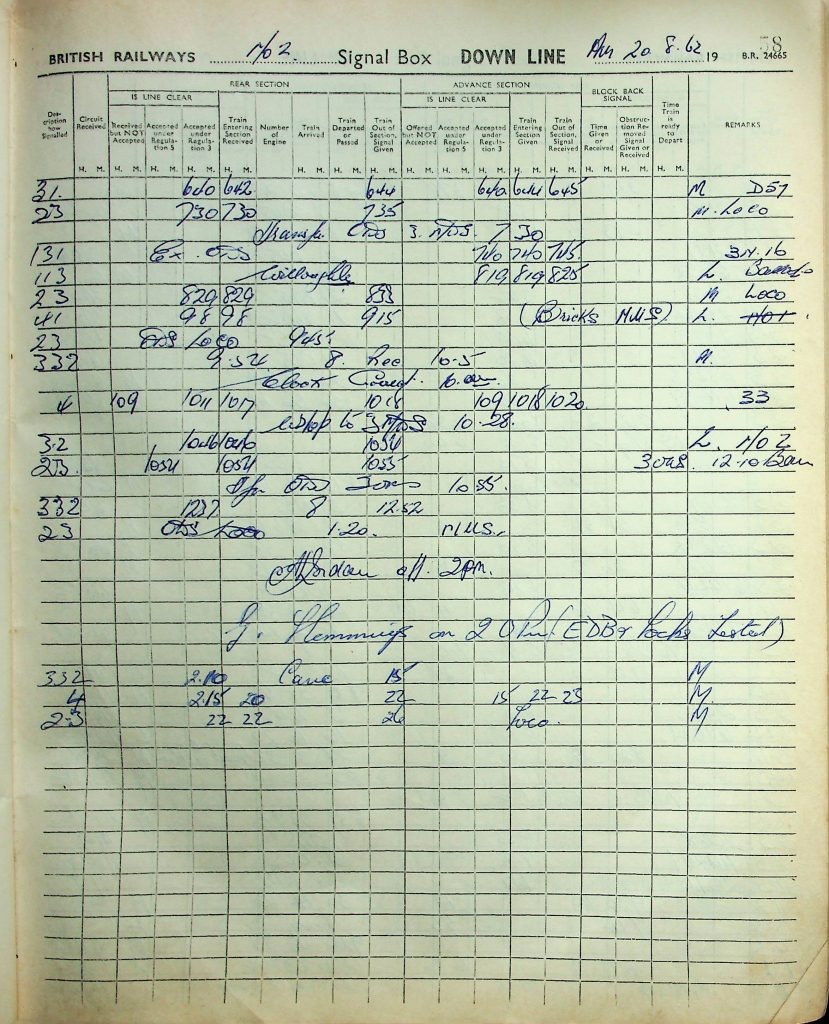 58
BRITISH RAILWAYS No 2 Signal Box DOWN LINE 20.8.62 19 B.R. 24665
REAR SECTION ADVANCE SECTION BLOCK BACK SIGNAL
IS LINE CLEAR IS LINE CLEAR
Description how Signalled Circuit Received Received but NOT Accepted Accepted under Regulation 5 Accepted under Regulation 3 Train Entering Section Received Number of Engine Train Arrived Train Departed or Passed Train Out of Section, Signal Given Offered but NOT Accepted Accepted under Regulation 5 Accepted under Regulation 3 Train Entering Section Given Train Out of Section, Signal Received Time Given or Received Obstruction Removed Signal Given or Received Time Train is ready to Depart REMARKS
H. M. H. M. H. M. H. M. H. M. H. M. H. M. H. M. H. M. H. M. H. M. H. M. H. M. H. M. H. M. H. M.
31. 640 642 644 640 644 645 M D57
23 730 730 735 M. Loco
3 7 30
131 Ex. 740 740 745. 3M.16
113 819 819 825 L.
23 829 829 833 M Loco
41 98 98 915 (Bricks MMS) L.
23 Loco 945.
332 9.54 8. Rec 10.5 M.
Clock
4 109 1011 1017 1018 109 1018 1020 33
to 10.28.
3.2 1046 1046 1054 L. No 2
23. 1054 1054 1055 12.10
10 55.
332 1237 8 12.52
23 Loco 1.20. MMS.
off. 2pm.
G. Hemmings on 2 0 Pm (EDB & Locks Tested)
332 2.10 15 M
4 2.15 20 22 15 22 23 M
2-3 22 22 26 Loco. M